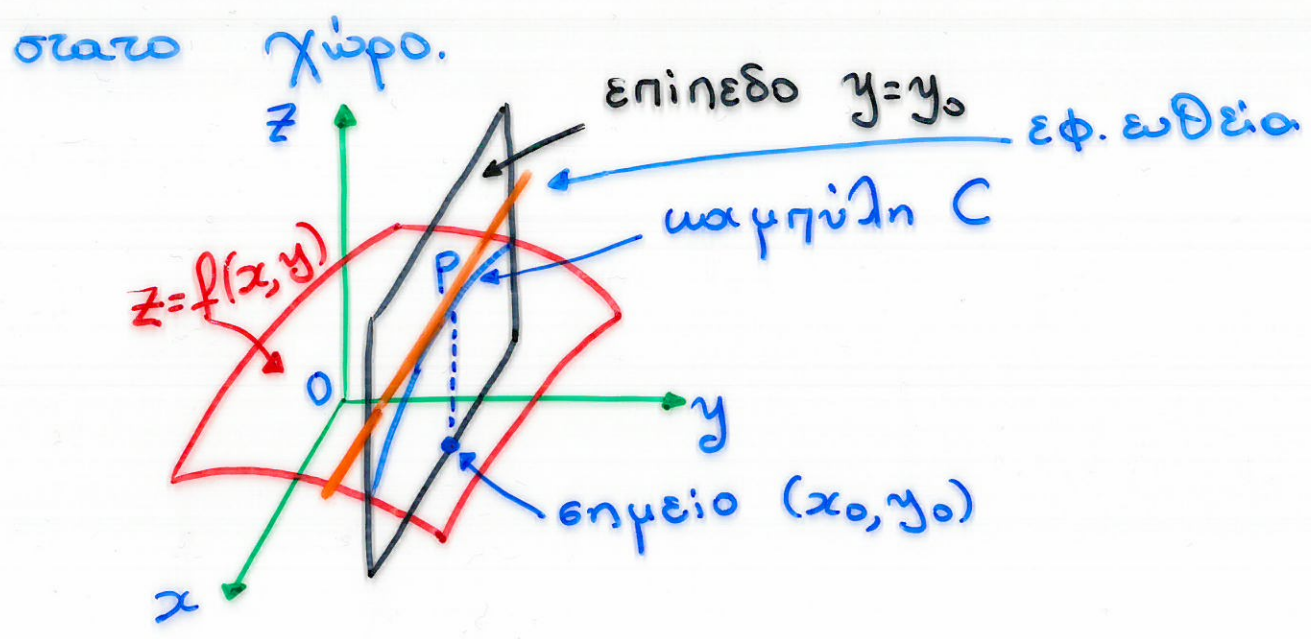 στατο χώρο.
z
επίπεδο y=y₀
εφ. ευθεία
καμπύλη C
P
z=f(x,y)
O
y
σημείο (x₀,y₀)
x